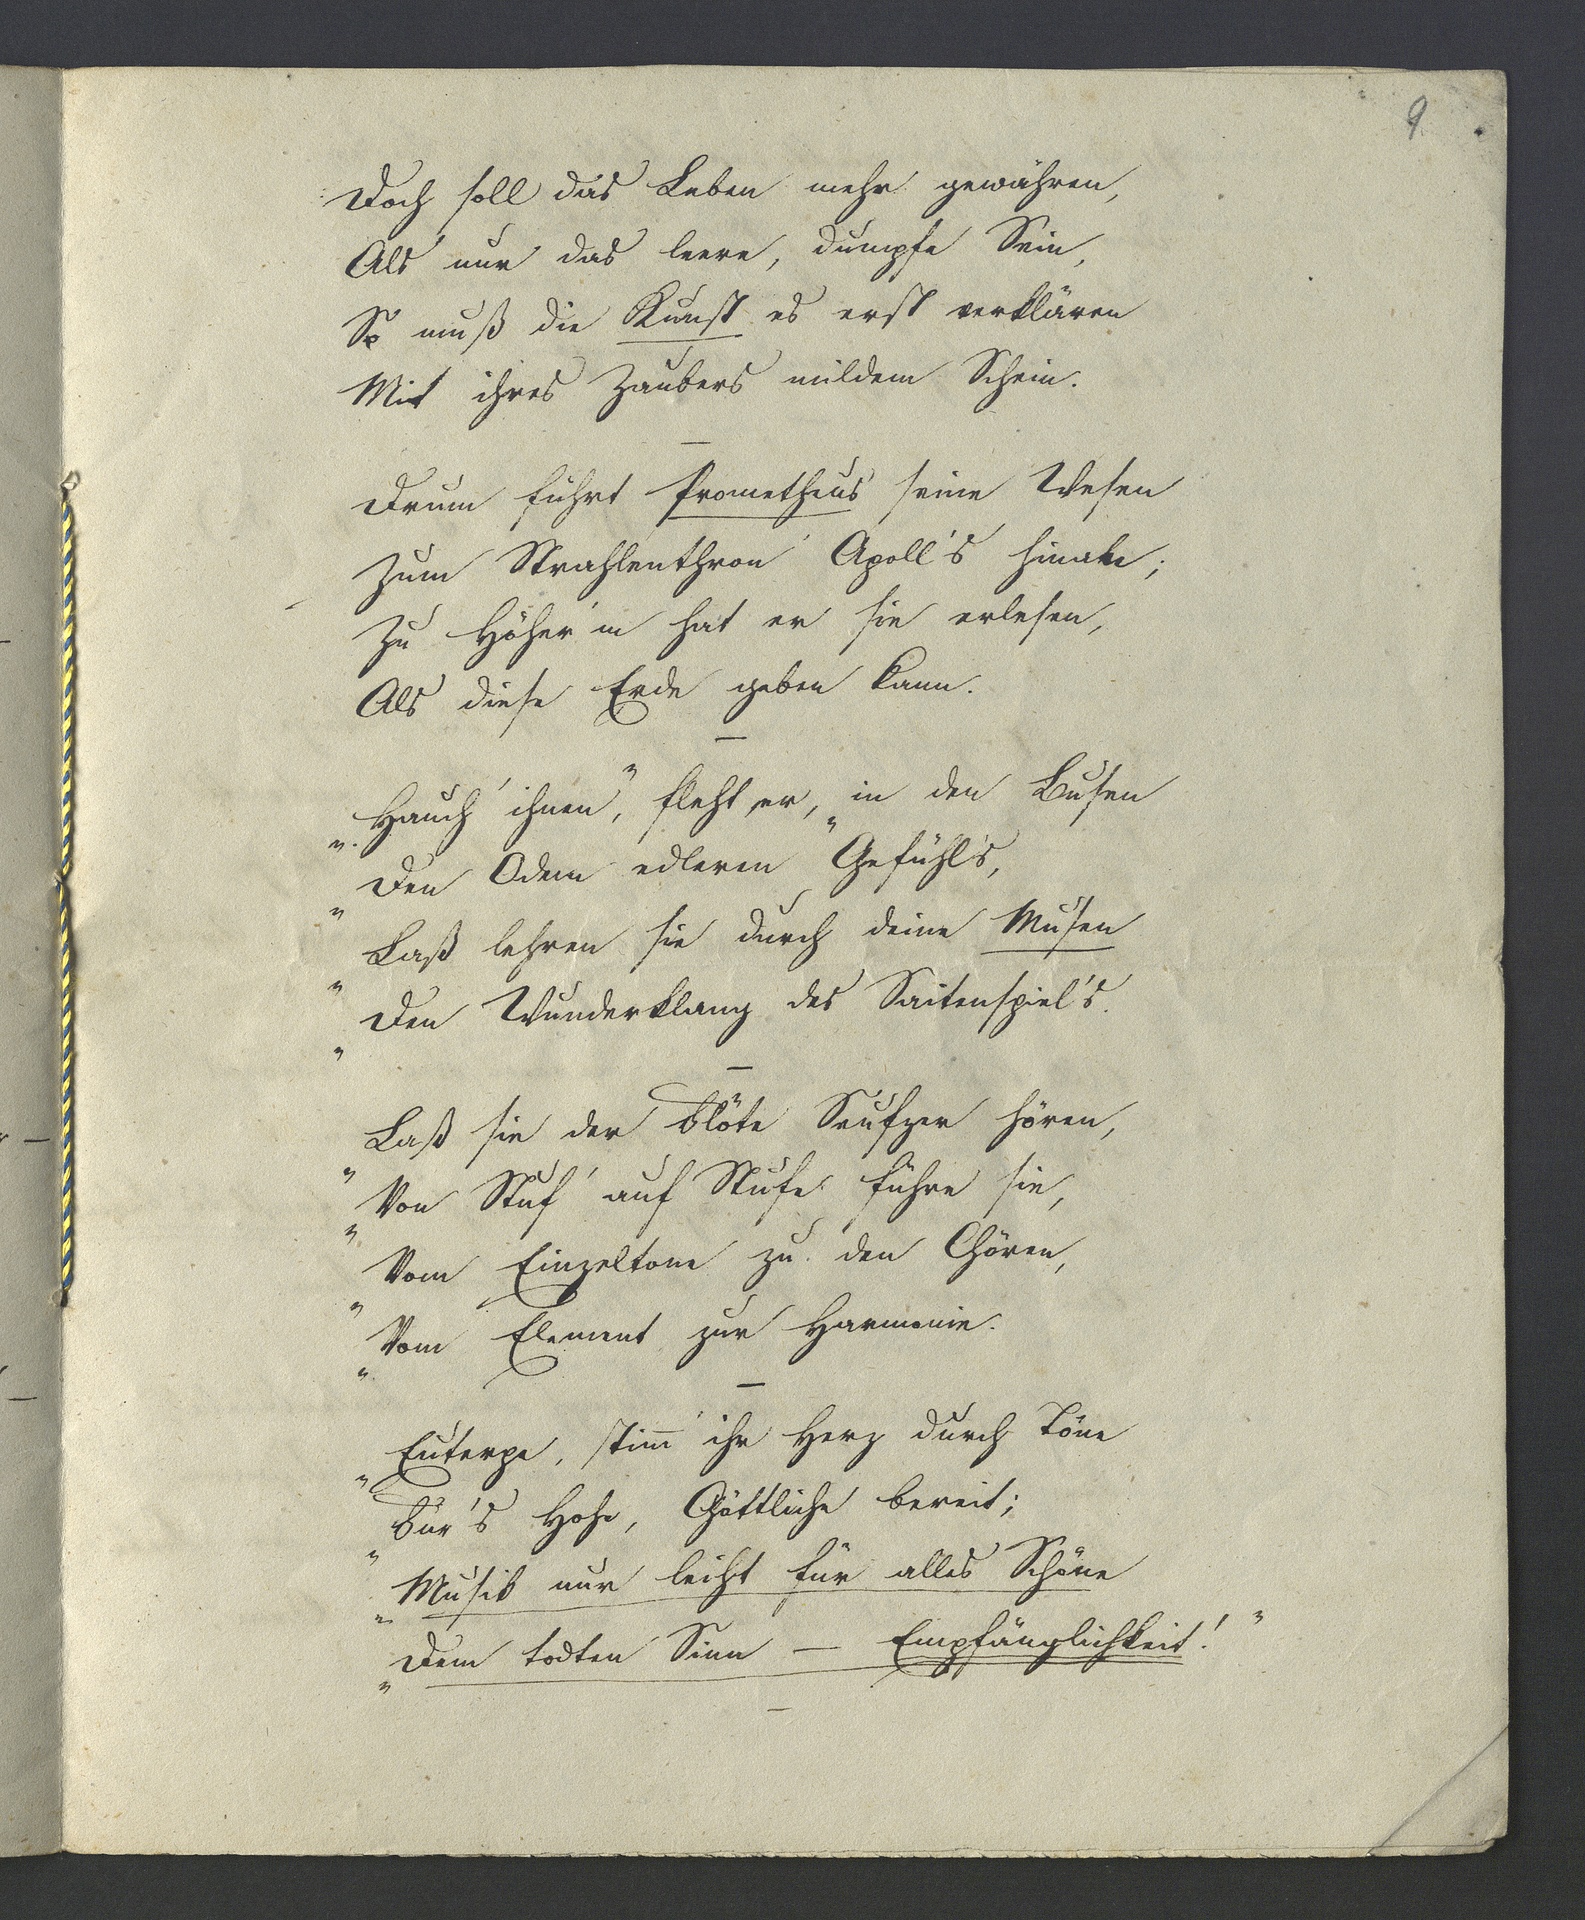 9
Doch soll das Leben mehr gewähren,
Als nur das leere, dumpfe Sein,
So muß die Kunst es erst verklären
Mit ihres Zaubers mildem Schein.
—
Drum führt Prometheus seine Wesen
Zum Strahlenthron Apoll's hinan;
Zu Höher'm hat er sie erlesen,
Als diese Erde geben kann.
—
„Hauch' ihnen", fleht er, „in den Busen
„Den Odem edleren Gefühl's,
„Laß lehren sie durch deine Musen
„Den Wunderklang des Saitenspiel's.
—
„Laß sie der Flöte Seufzer hören,
„Von Stuf' auf Stufe führe sie,
„Vom Einzeltone zu den Chören,
„Vom Element zur Harmonie.
—
„Euterpe, stim̅' ihr Herz durch Töne
„Für's Hohe, Göttliche bereit;
„Musik nur leiht für alles Schöne
„Dem todten Sinn — Empfänglichkeit!"
—